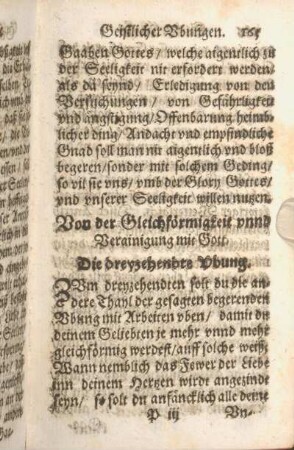 Geistlicher Vbungen.
Gaaben Gottes/ welche aigentlich zu
der Seeligkeit nit erfordert werden/
als da seynd/ Erledigung von den
Versuchungen/ von Gefährligkeit
vnd ängstigung/ Offenbarung heimb-
licher ding/ Andacht vnd empfindliche
Gnad soll man nit aigentlich vnd bloß
begeren/ sonder mit solchem Geding/
so vil sie vns/ vmb der Glory Gottes/
vnd vnserer Seeligkeit willen nutzen.
Von der Gleichförmigkeit vnnd
Verainigung mit Gott.
Die dreyzehendte Vbung.
ZVm dreyzehendten solt du die an-
dere Thayl der gesagten begerenden
Vbung mit Arbeiten vben/ damit du
deinem Geliebten je mehr vnnd mehr
gleichförmig werdest/ auff solche weiß.
Wann nemblich das Fewer der Liebe
inn deinem Hertzen wirdt angezindt
seyn/ so solt du anfäncklich alle deine
P iij Vn-